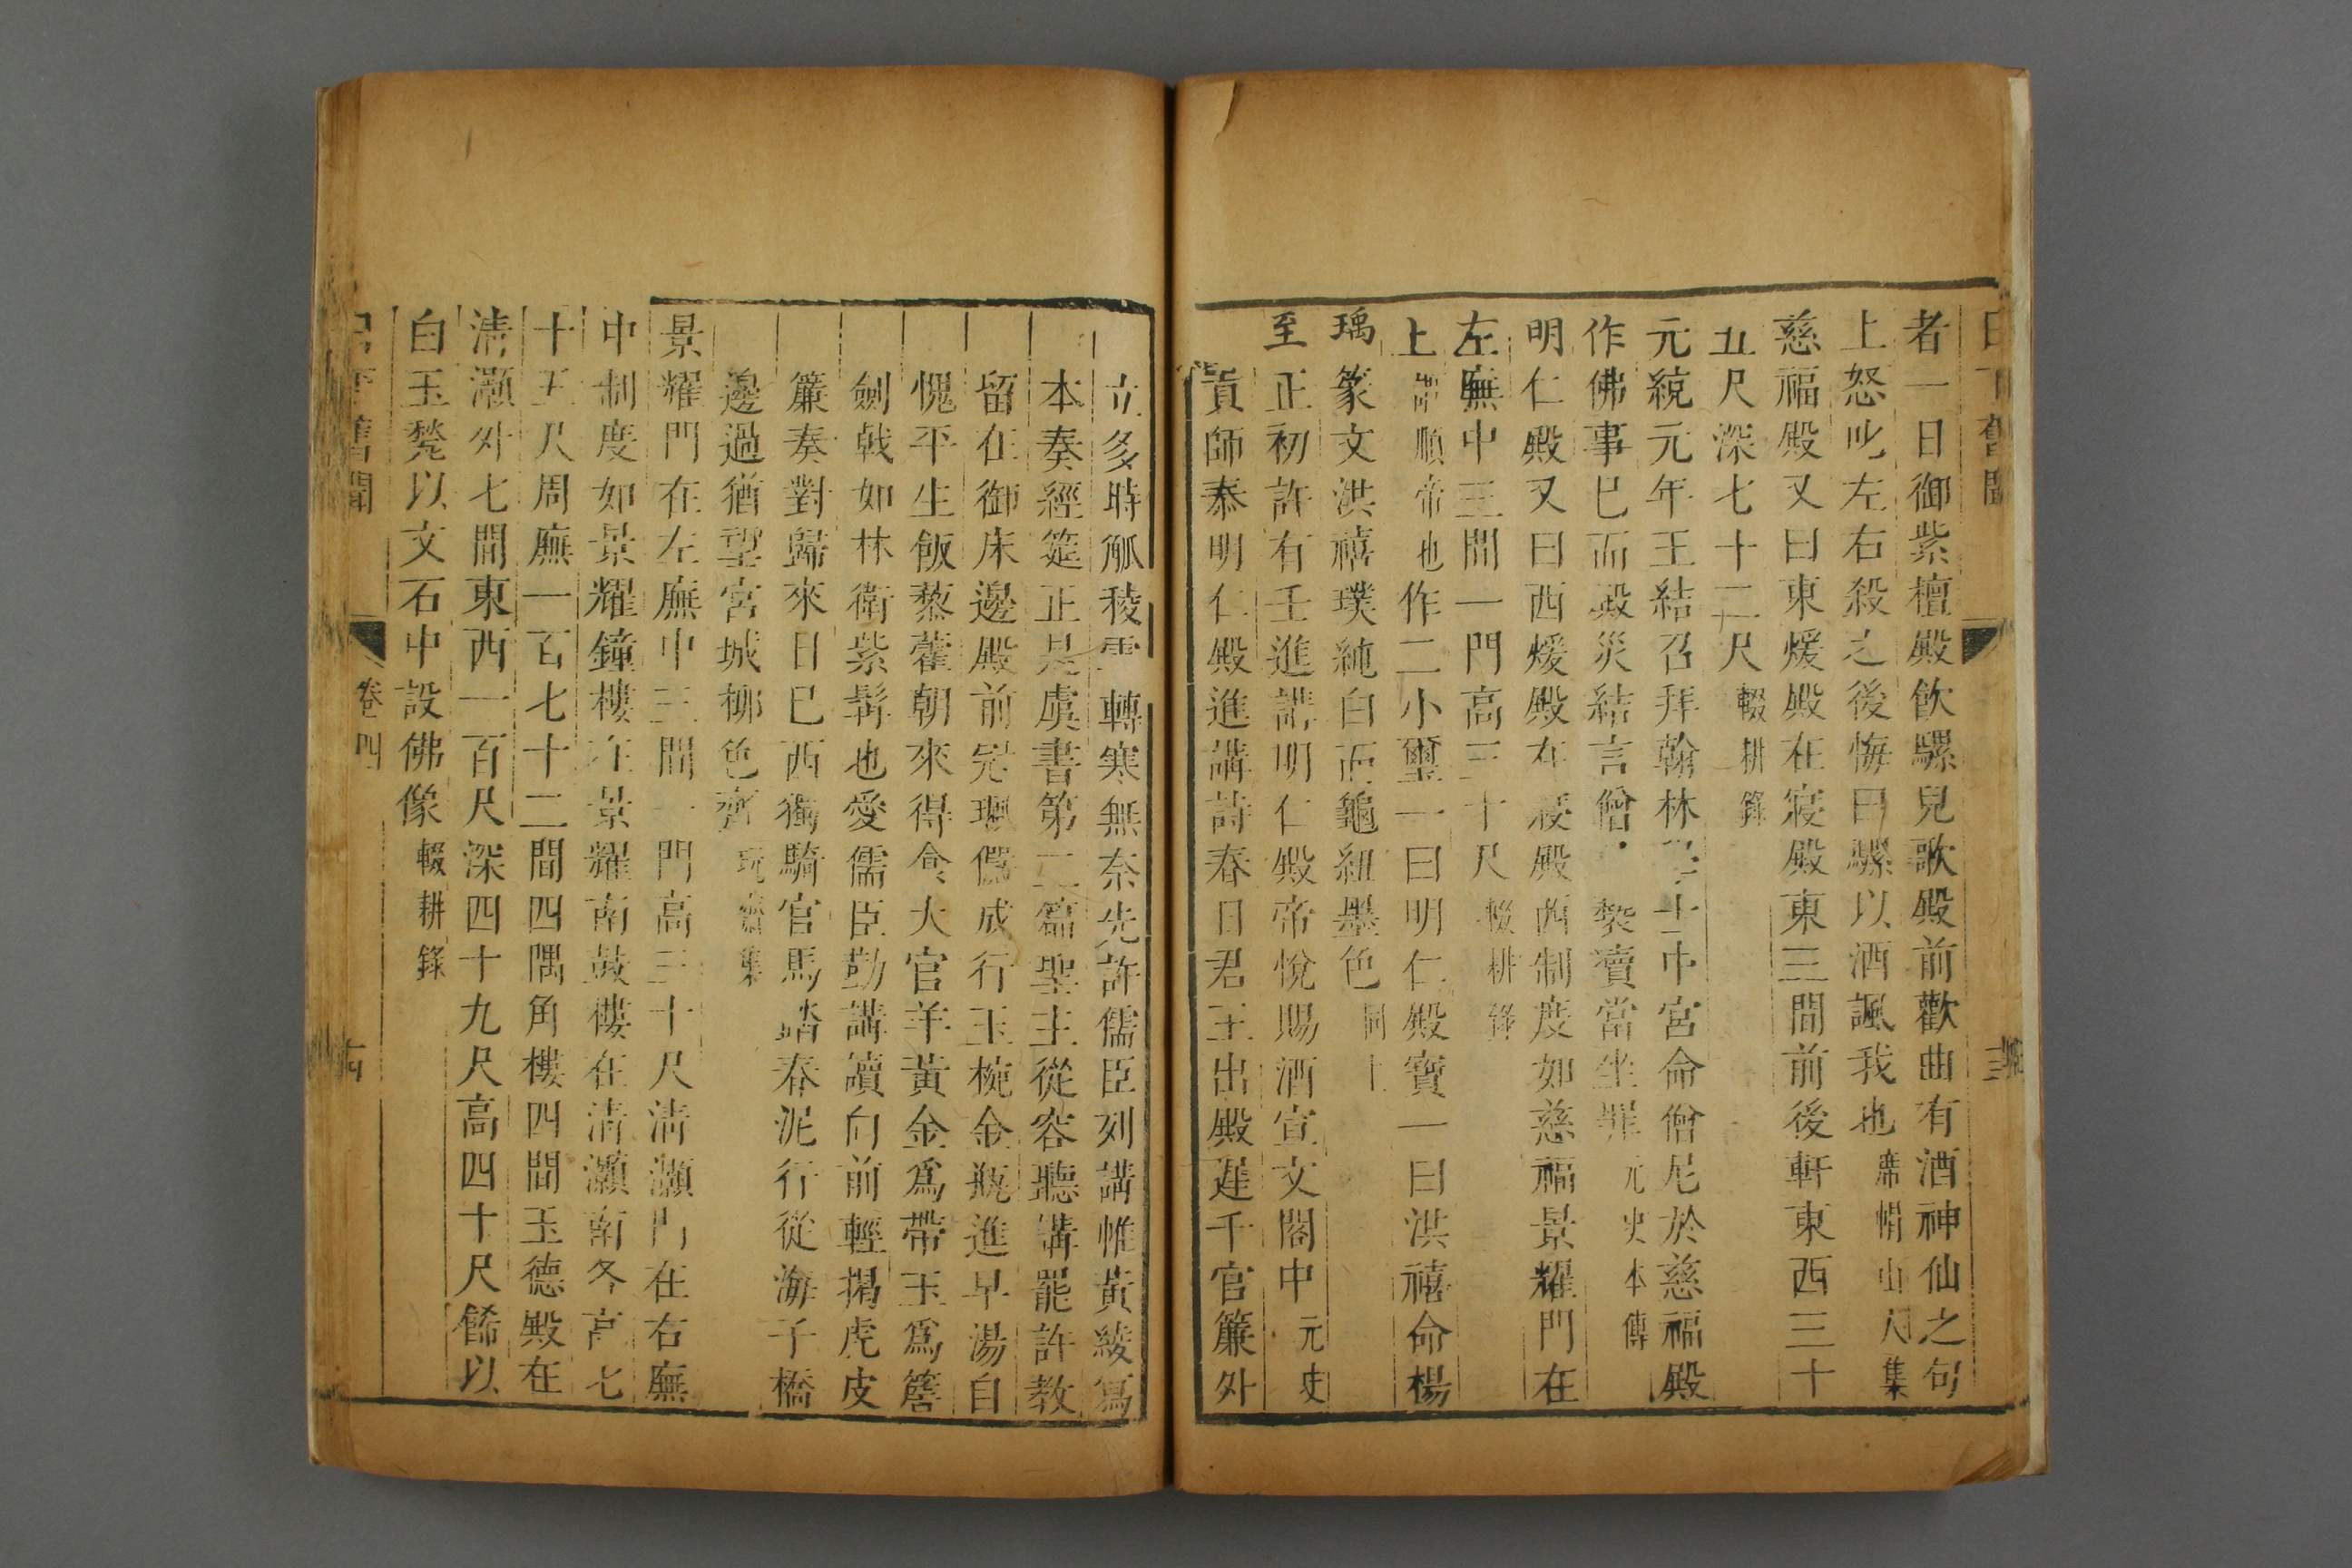 日下舊聞
者一日御紫檀殿飮騾兒歌殿前歡曲有酒神仙之句
上怒叱左右殺之後悔曰騾以酒諷我也席帽山人集
慈福殿又曰東煖殿在寢殿東三間前後軒東西三十
五尺深七十二尺輟耕錄
元統元年王結召拜翰林學士中宮命僧尼於慈福殿
作佛事已而殿災結言僧褻瀆當坐罪元史本傳
明仁殿又曰西煖殿在寢殿西制度如慈福景耀門在
左廡中三間一門高三十尺輟耕錄
上謂順帝也作二小璽一曰明仁殿寶一曰洪禧命楊
瑀篆文洪禧璞純白而龜紐墨色同上
至正初許有壬進講明仁殿帝悅賜酒宣文閣中元史
貢師泰明仁殿進講詩春日君王出殿遲千官簾外
立多時觚稜雪轉寒無奈先許儒臣列講帷黃綾寫
本奏經筵正是虞書第二篇聖主從容聽講罷許教
留在御床邊殿前冠珮儼成行玉椀金瓶進早湯自
愧平生飯藜藿朝來得食大官羊黃金爲帶玉爲簷
劍戟如林衛紫髯也愛儒臣勤講讀向前輕揭虎皮
簾奏對歸來日已西獨騎官馬踏春泥行從海子橋
邊過猶望宮城柳色齊玩齋集
景耀門在左廡中三間一門高三十尺淸灝門在右廡
中制度如景耀鐘樓在景耀南鼓樓在淸灝南各高七
十五尺周廡一百七十二間四隅角樓四間玉德殿在
淸灝外七間東西一百尺深四十九尺高四十尺餙以
白玉甃以文石中設佛像輟耕錄
舊聞
卷四